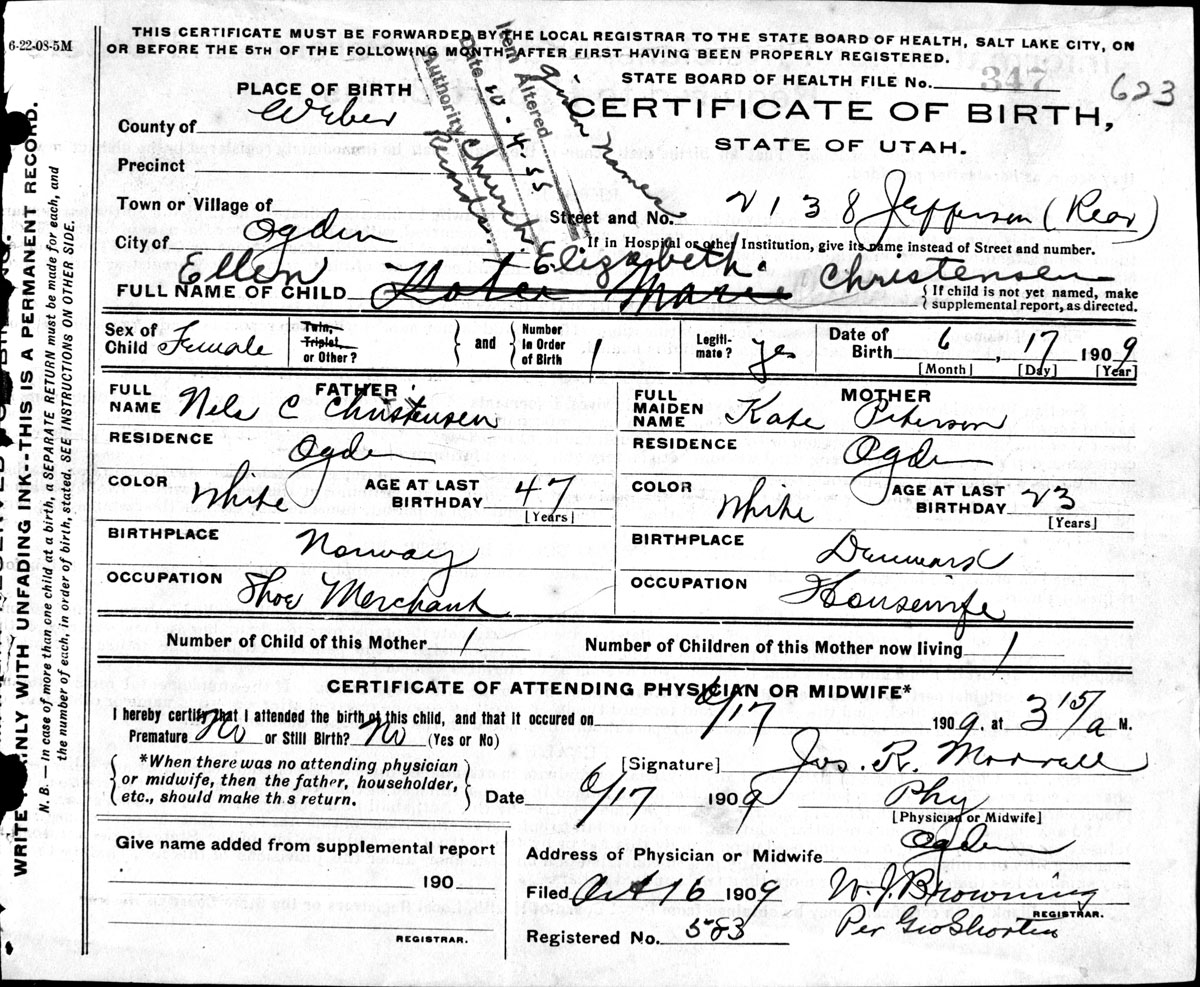 6-22-08-5M
THIS CERTIFICATE MUST BE FORWARDED BY THE LOCAL REGISTRAR TO THE STATE BOARD OF HEALTH, SALT LAKE CITY, ON
OR BEFORE THE 5TH OF THE FOLLOWING MONTH AFTER FIRST HAVING BEEN PROPERLY REGISTERED.
STATE BOARD OF HEALTH FILE No. 347 623
Item Altered given name
Date 10-4-55
Authority. Church Records.
PLACE OF BIRTH
CERTIFICATE OF BIRTH,
STATE OF UTAH.
County of Weber
Precinct
Town or Village of
Street and No. 2138 Jefferson (Rear)
City of Ogden
If in Hospital or other Institution, give its name instead of Street and number.
Ellen Elizabeth Christensen
FULL NAME OF CHILD Marie
{If child is not yet named, make
supplemental report, as directed.
Sex of Child Female
Twin, Triplet, or Other?
and
Number in Order of Birth 1
Legiti-mate? yes
Date of Birth 6, 17 1909
[Month] [Day] [Year]
FATHER
FULL NAME Nels C Christensen
RESIDENCE Ogden
COLOR White
AGE AT LAST BIRTHDAY 47
[Years]
BIRTHPLACE Norway
OCCUPATION Shoe Merchant
MOTHER
FULL MAIDEN NAME Kate Peterson
RESIDENCE Ogden
COLOR White
AGE AT LAST BIRTHDAY 23
[Years]
BIRTHPLACE Denmark
OCCUPATION Housewife
Number of Child of this Mother 1
Number of Children of this Mother now living 1
CERTIFICATE OF ATTENDING PHYSICIAN OR MIDWIFE*
I hereby certify that I attended the birth of this child, and that it occured on 6/17 1909, at 3 15/a M.
Premature No or Still Birth? No (Yes or No)
*When there was no attending physician
or midwife, then the father, householder,
etc., should make this return.
[Signature] Jos. R. Morrell
Date 6/17 1909
Phy
[Physician or Midwife]
Give name added from supplemental report
190
REGISTRAR.
Address of Physician or Midwife Ogden
Filed Oct 16 1909 W. J. Browning
REGISTRAR.
Registered No. 583 Per Geo Shorten
WRITE PLAINLY WITH UNFADING INK--THIS IS A PERMANENT RECORD.
N. B. — In case of more than one child at a birth, a SEPARATE RETURN must be made for each, and
the number of each, in order of birth, stated. SEE INSTRUCTIONS ON OTHER SIDE.